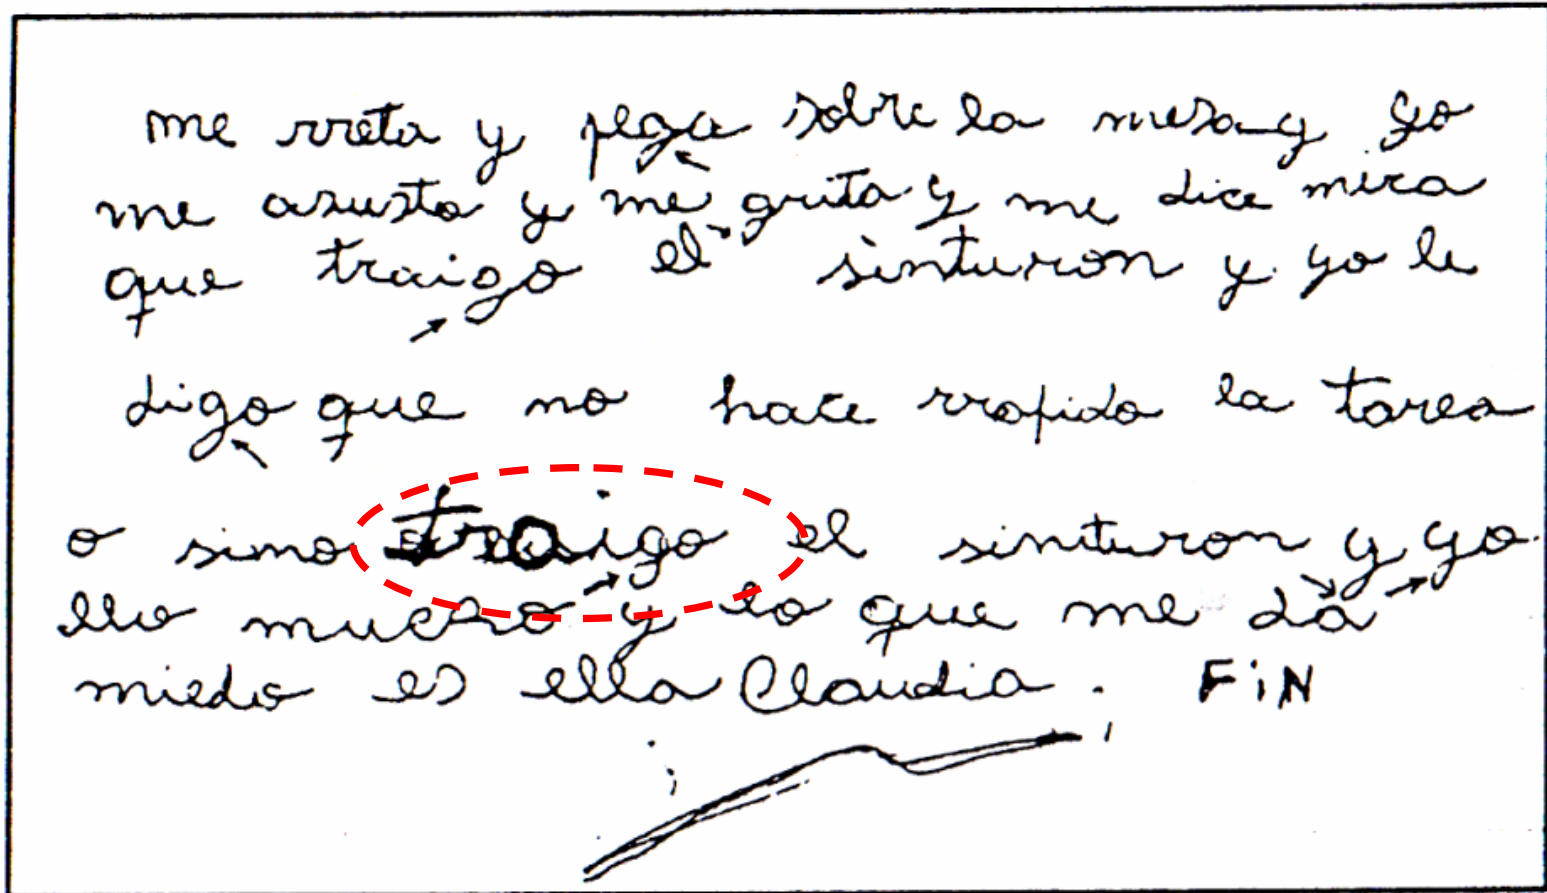 me rreta y pega sobre la mesa y yo
me asusto y me grita y me dice mira
que traigo el sinturon y yo le
digo que no hace rrapido la tarea
o simo traigo el sinturon y yo
llo mucho y lo que me dá
miedo es ella Claudia. FiN